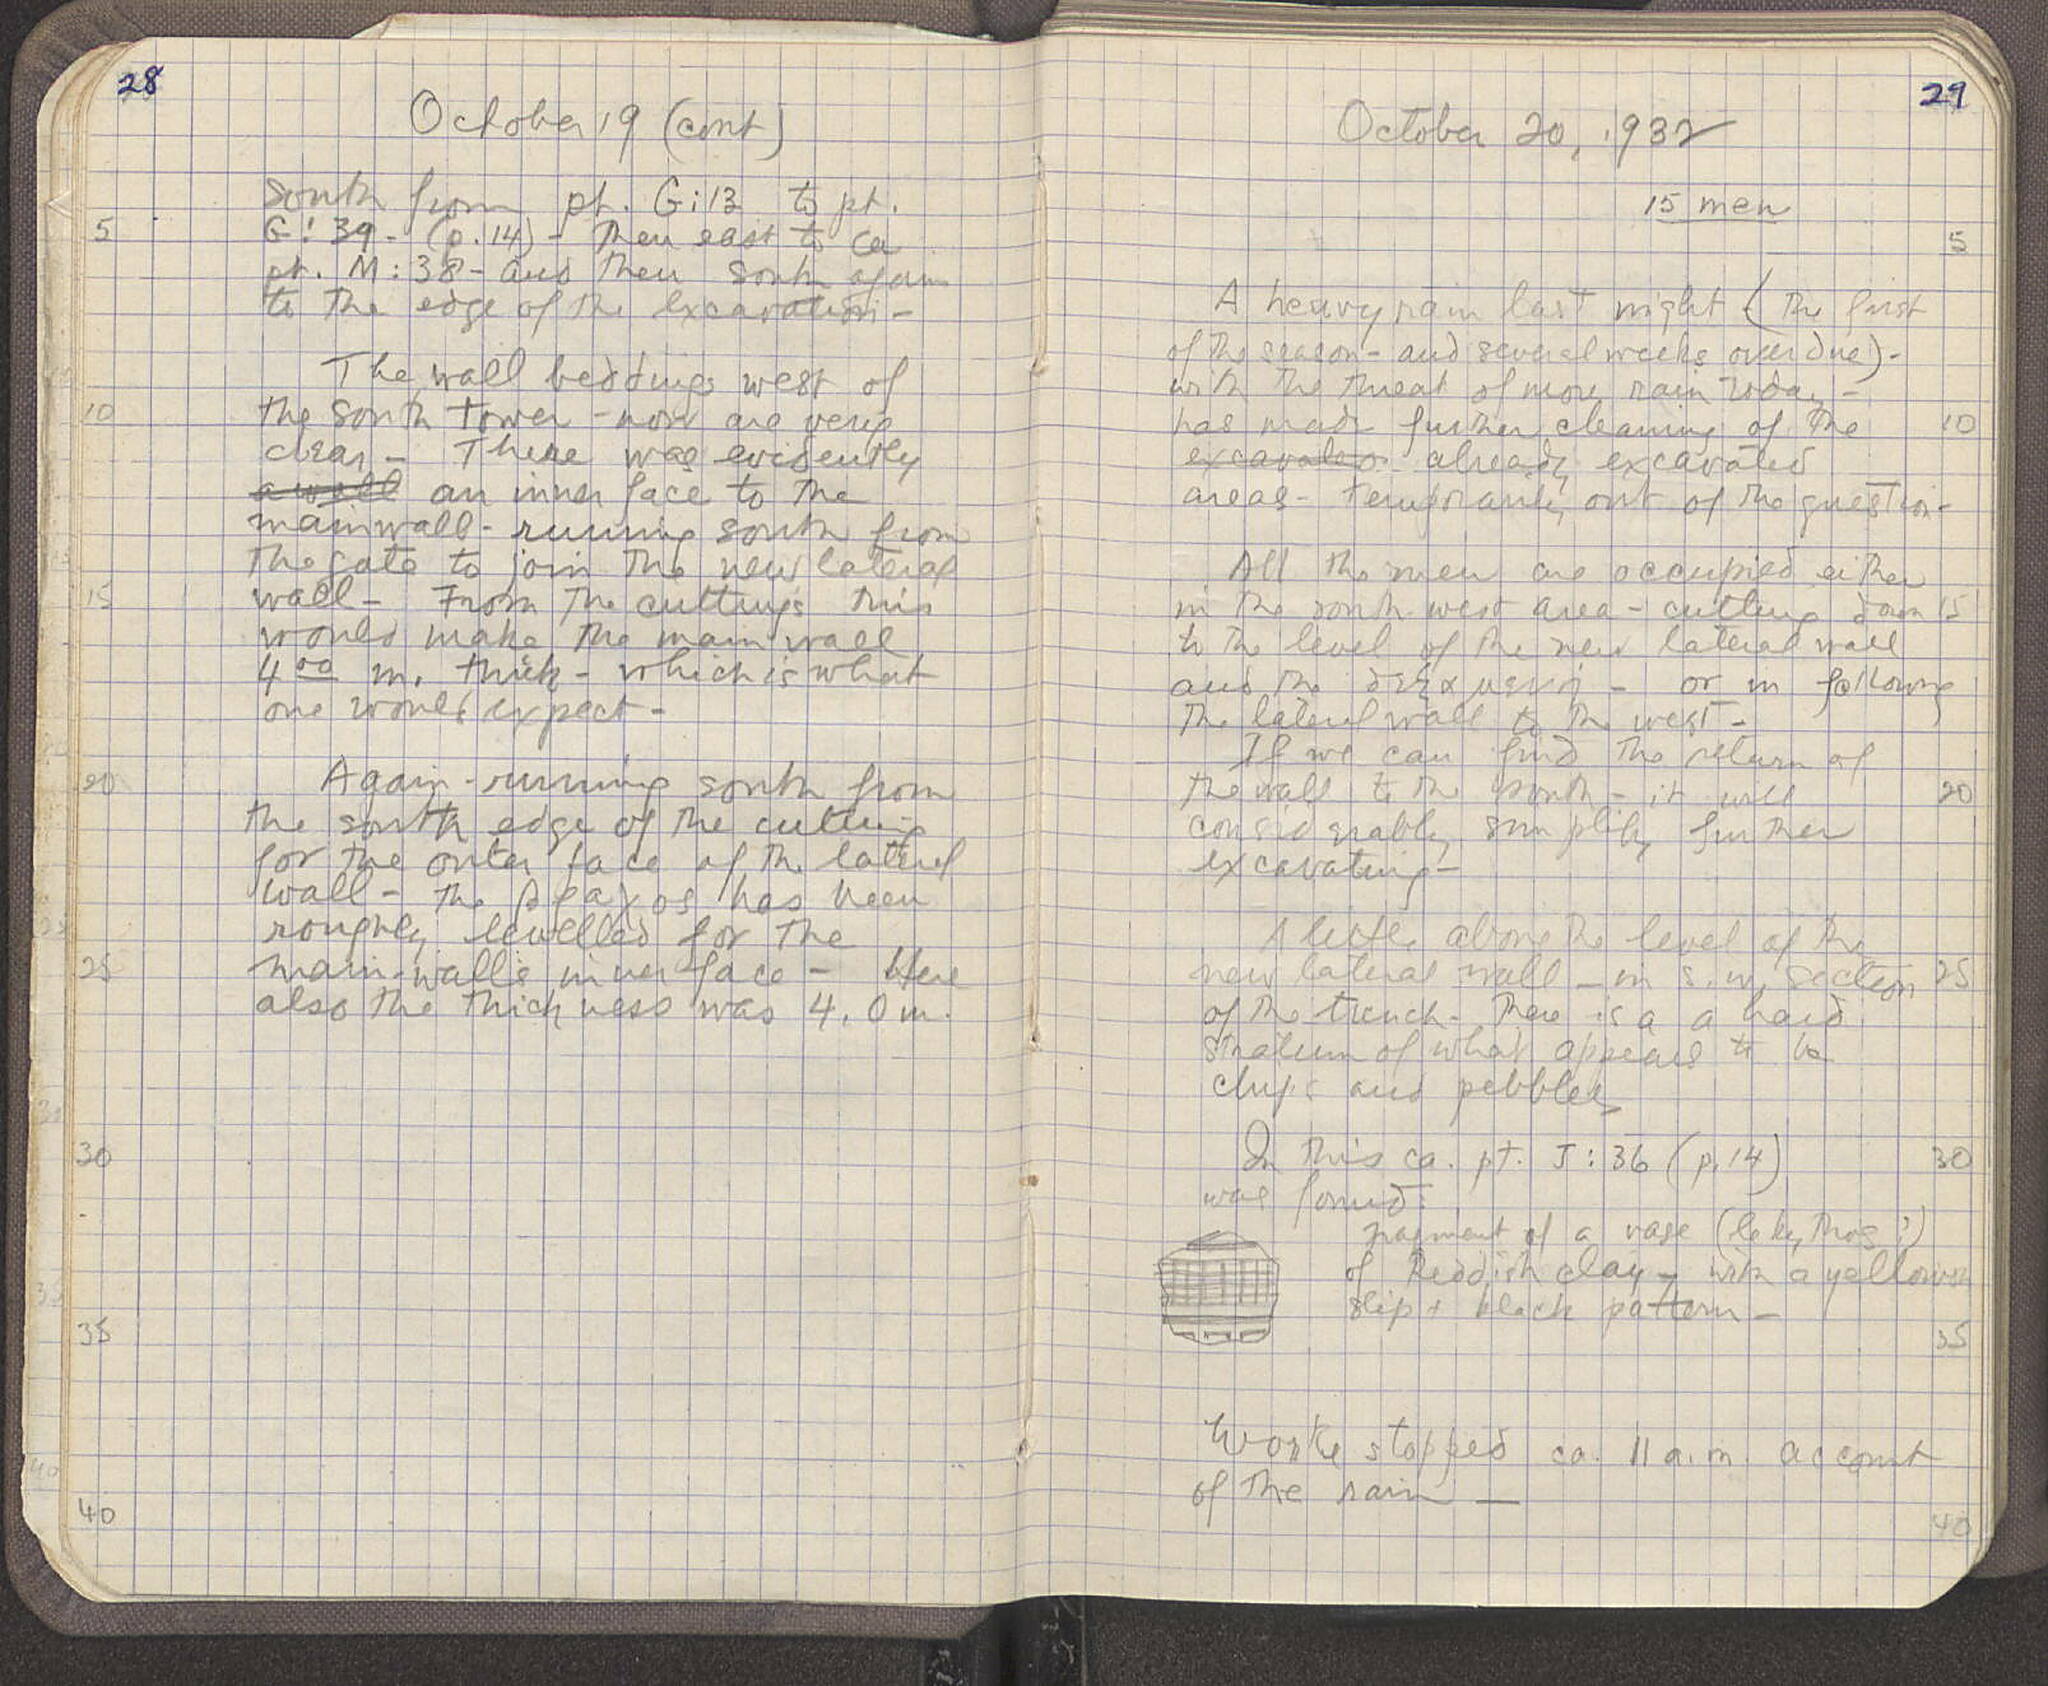 28
October 19 (cont)
south from pt. G:13 to pt.
5
G:39 - (p. 14) - then east to ca
pt. M:38 - and then south again
to the edge of the excavation -
The wall beddings west of
10
the south tower - now are very
clear - There was evidently
a wall an inner face to the
main wall - running south from
the gate to join the new lateral
15
wall - From the cuttings this
would make the main wall
4.00 m. thick - which is what
one would expect -
Again - running south from
20
the south edge of the cutting
for the outer face of the lateral
wall - the βραχος has been
roughly levelled for the
25
main-wall's inner face - Here
also the thickness was 4.0 m.
30
35
40
29
October 20, 1932
15 men
5
A heavy rain last night (the first
of the season - and several weeks overdue) -
with the threat of more rain today -
has made further cleaning of the
10
already excavated
areas - temporarily out of the question -
All the men are occupied either
in the south west area - cutting down
15
to the level of the new lateral wall
and the δεξαμενή - or in following
the lateral wall to the west -
If we can find the return of
the wall to the south - it will
20
considerably simplify further
excavating -
A little above the level of the
new lateral wall - in s.w. section
25
of the trench - there is a a hard
stratum of what appears to be
chips and pebbles
In this ca. pt. J:36 (p. 14)
30
was found:
fragment of a vase (lekythos?)
of Reddish clay - with a yellowish
slip + black pattern -
35
Work stopped ca. 11 a.m. account
of the rain -
40